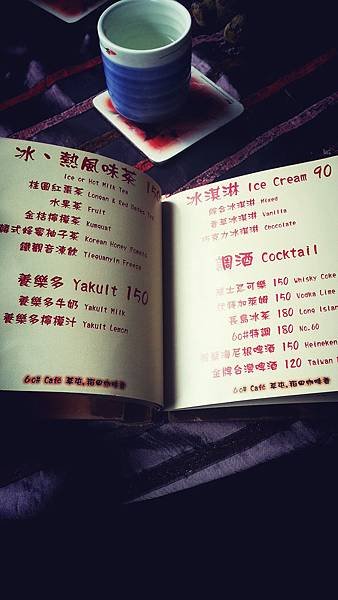 冰、熱風味茶 150
Ice or Hot Milk Tea
桂圓紅棗茶 Longan & Red Dates Tea
水果茶 Fruit
金桔檸檬茶 Kumquat
韓式蜂蜜柚子茶 Korean Honey
鐵觀音凍飲 Tieguanyin Freeze
養樂多 Yakult 150
養樂多牛奶 Yakult Milk
養樂多檸檬汁 Yakult Lemon
60# Café 草屯。貓田咖啡巷
冰淇淋 Ice Cream 90
綜合冰淇淋 Mixed
香草冰淇淋 Vanilla
巧克力冰淇淋 Chocolate
調酒 Cocktail
威士忌可樂 150 Whisky Coke
伏特加萊姆 150 Vodka Lime
長島冰茶 180 Long Island
60#特調 180 No.60
海尼根啤酒 150 Heineken
金牌台灣啤酒 120 Taiwan
60# Café 草屯。貓田咖啡巷